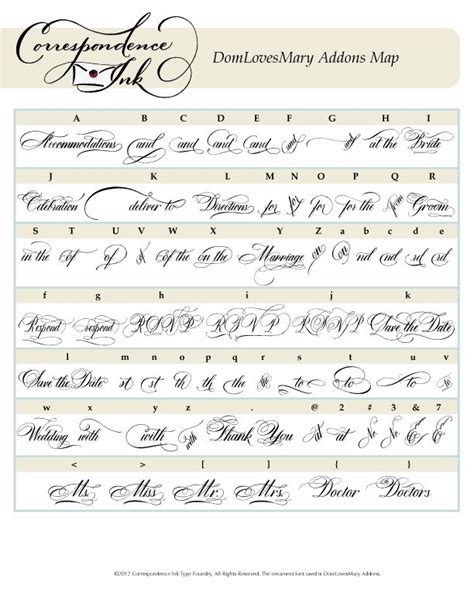 Correspondence
Ink
DomLovesMary Addons Map
A B C D E F G H I
Accommodations and and and and and of at the Bride
J K L M N O P Q R
Celebration deliver to Directions for for for the from Groom
S T U V W X Y Z a b c d e
in the of of of the on the Marriage on on nd nd rd rd
f g h i j k
Respond respond RSVP RSVP RSVP Save the Date
l m n o p q r s t u v
Save the Date st st th th the the to to to to
w x y z , . @ 2 3 & 7
Wedding with with with Thank You at at No. No. & &
< > [ ] { }
Ms. Miss Mr. Mrs. Doctor Doctors
©2012 Correspondence Ink Type Foundry. All Rights Reserved. The ornament font used is DomLovesMary Addons.